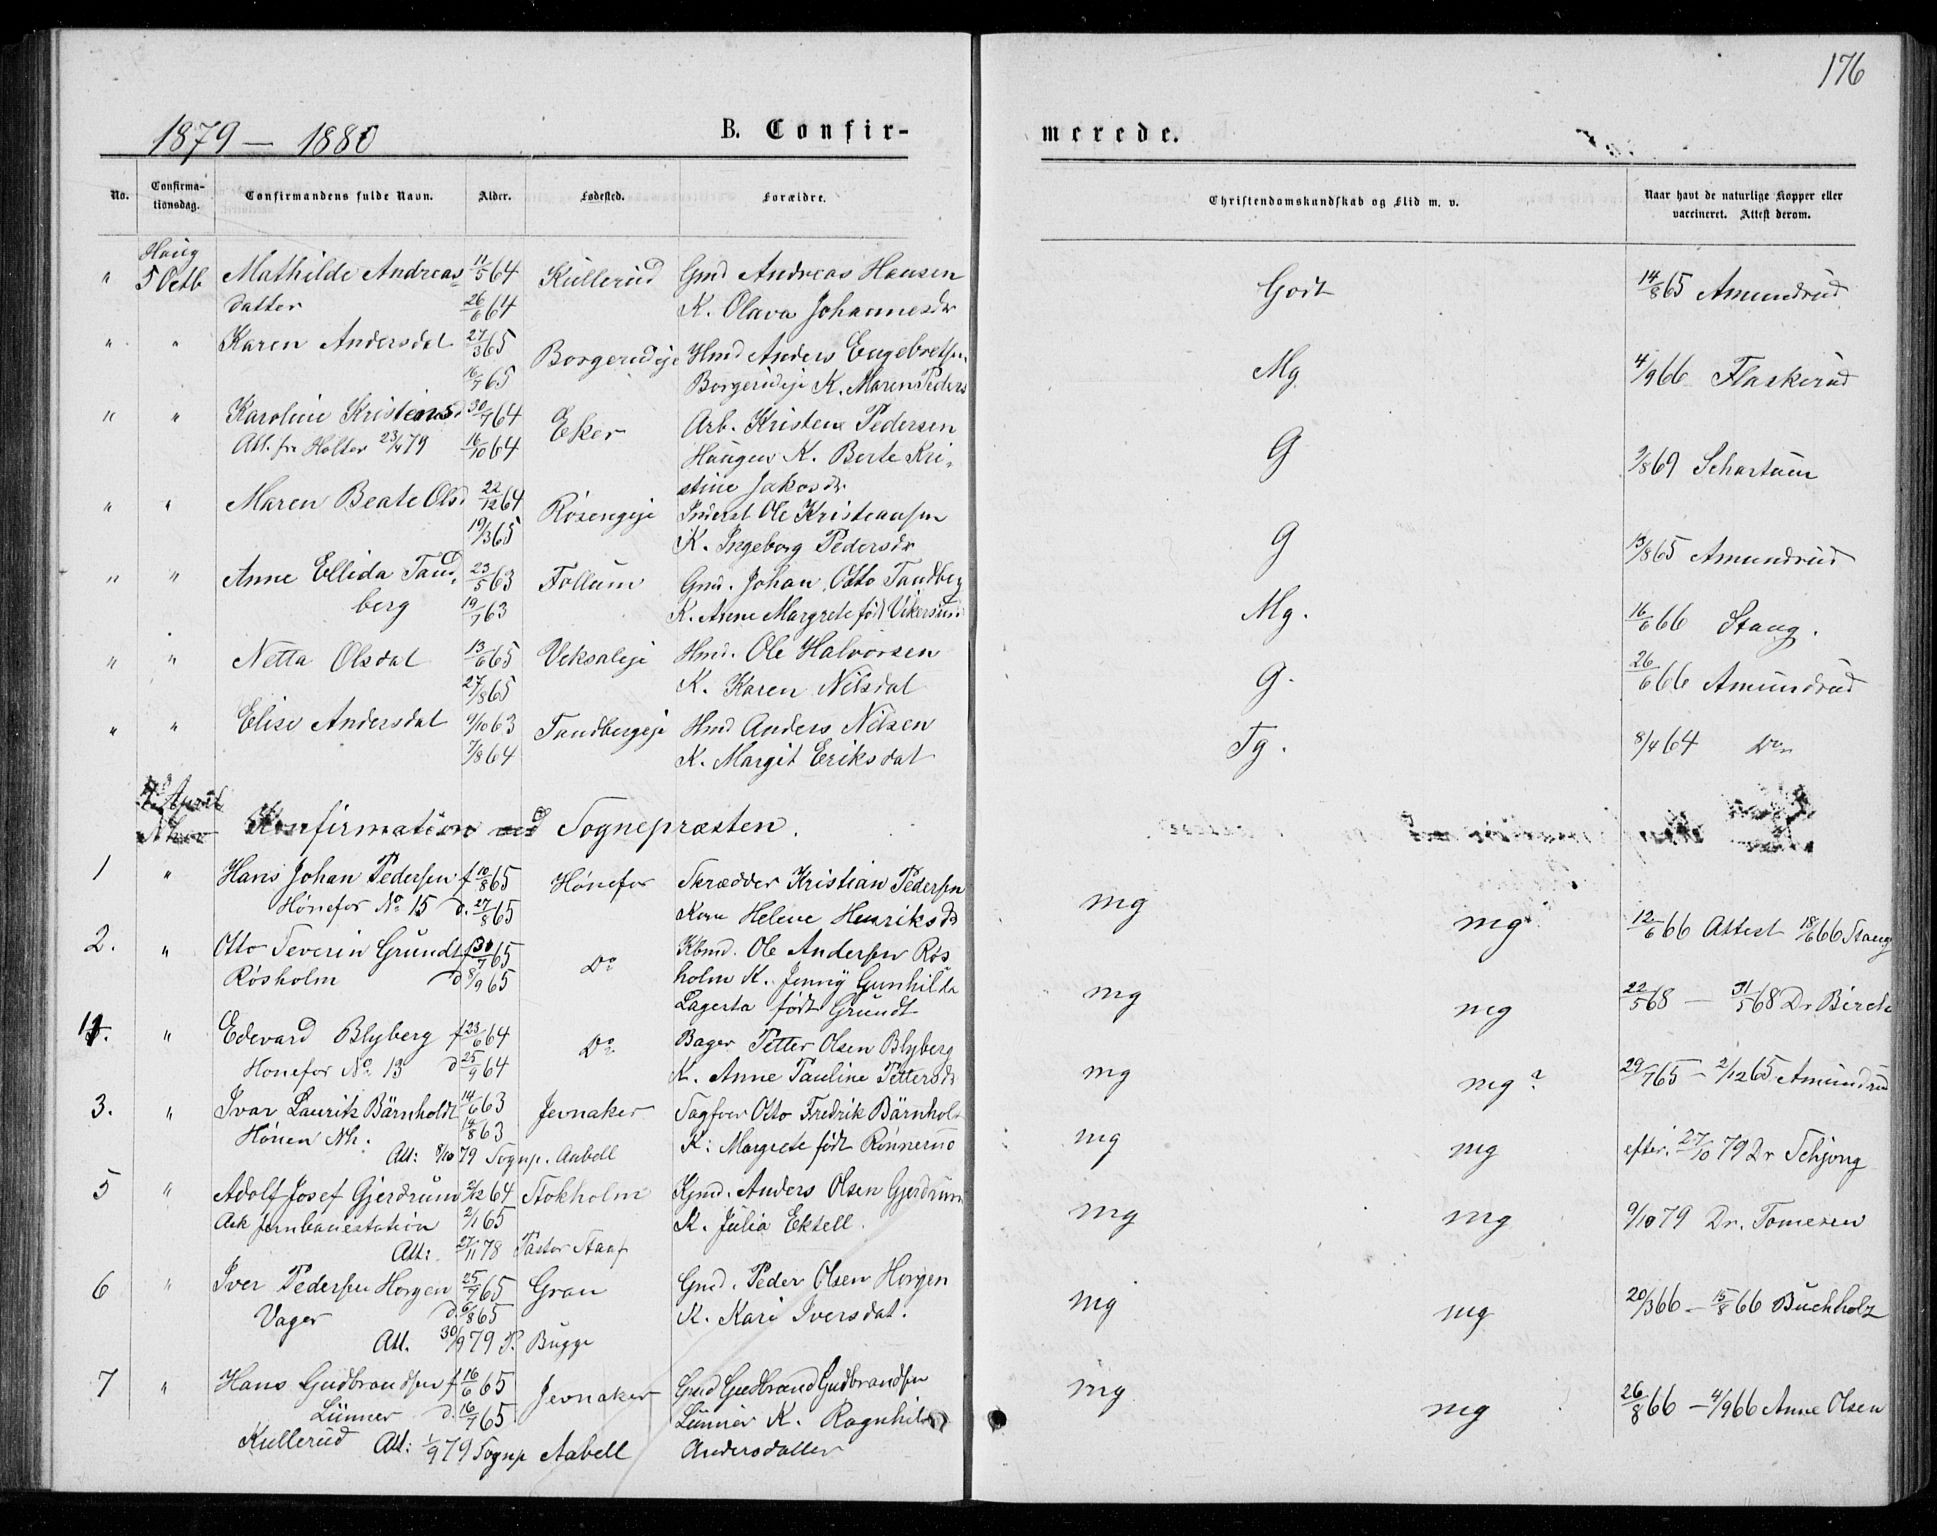 176
1879 — 1880
B. Confir-
merede.
No.
Confirma-
tionsdag.
Confirmandens fulde Navn.
Alder.
Fødested.
Forældre.
Christendomskundskab og Flid m. v.
Naar havt de naturlige Kopper eller
vaccineret. Attest derom.
Haug
" 5 Octb Mathilde Andreas- 11/5 64 Kullerud Gmd Andreas Hansen Godt 14/8 65 Amundrud
datter 26/6 64 K. Olava Johannesdr
" " Karen Andersdat 27/3 65 Borgerudeje Hmd Anders Engebretsen Mg 4/9 66 Flaskerud
16/7 65 Borgerudeje K. Maren Peders
" " Karoline Kristensd 30/7 64 Eker Arb. Kristen Pedersen G 2/8 69 Schartum
Att. fra Holter 23/4 79 16/10 64 Haugen K. Berte Kri-
stine Jakosdr
" " Maren Beate Olsd 22/12 64 Rosengeje Inderst Ole Kristiansen G 13/8 65 Amundrud
19/3 65 K. Ingeborg Pedersdr
" " Anne Ellida Tand- 23/5 63 Follum Gmd. Johan Otto Tandberg Mg. 16/6 66 Stang.
berg 19/7 63 K. Anne Margrete født Vikersund
" " Netta Olsdat 13/6 65 Veksaleje Hmd. Ole Halvorsen G. 26/6 66 Amundrud
27/8 65 K. Karen Nilsdat
" " Elise Andersdat 9/10 63 Tandbergeje Hmd Anders Nilsen Tg. 8/4 64 Do
7/8 64 K. Margit Eriksdat
April
Konfirmation ved Sognepræsten.
1 " Hans Johan Pedersen f 10/8 65 Hønefos Skrædder Kristian Pedersen mg mg 12/6 66 Attest 18/6 66 Stang
Hønefos No 15 d. 27/8 65 Kone Helene Henriksdr
2. " Otto Severin Grundt f 30/7 65 Do Kbmd. Ole Andersen Røs mg mg 22/5 68 — 31/5 68 Dr Birch
Røsholm d 8/9 65 holm K. Jenny Gunhilda
Lagerta født Grundt
" Edevard Blyberg f 23/6 64 Do Bager Petter Olsen Blyberg mg mg? 29/7 65 — 2/12 65 Amundrud
Honefos No 13 d 25/9 64 K. Anne Pauline Pettersdr
3. " Ivar Lauritz Bärnholdt 14/6 63 Jevnaker Sagfver Otto Fredrik Bärnholdt mg mg efter. 27/10 79 Dr Schjong
Hønen Nh. 14/8 63 K: Margrete født Rønnerud
Att: 8/10 79 Sognp. Aabell
5 " Adolf Josef Gjerdrum 2/12 64 Stokholm Kjmd. Anders Olsen Gjerdrum mg mg 9/10 79 Dr. Tomesen
Ask jernbanestation 2/1 65 K. Julia Ektell.
Att: 27/11 78 Pastor Staaf
6 " Iver Pedersen Horgen 25/7 65 Gran Gmd. Peder Olsen Horgen mg mg 20/3 66 — 15/8 66 Buchholz
Vager d. 6/8 65 K. Kari Iversdat.
Att. 30/9 79 P. Bugge
7 " Hans Gudbrandsen f 16/6 65 Jevnaker Gmd Gudbrand Gudbrandsen mg mg 26/8 66 — 4/9 66 Anne Olsen
Lunner d. 16/7 65 Lunner K. Ragnhild
Kullerud Att: 1/9 79 Sognp Aabell Andersdatter